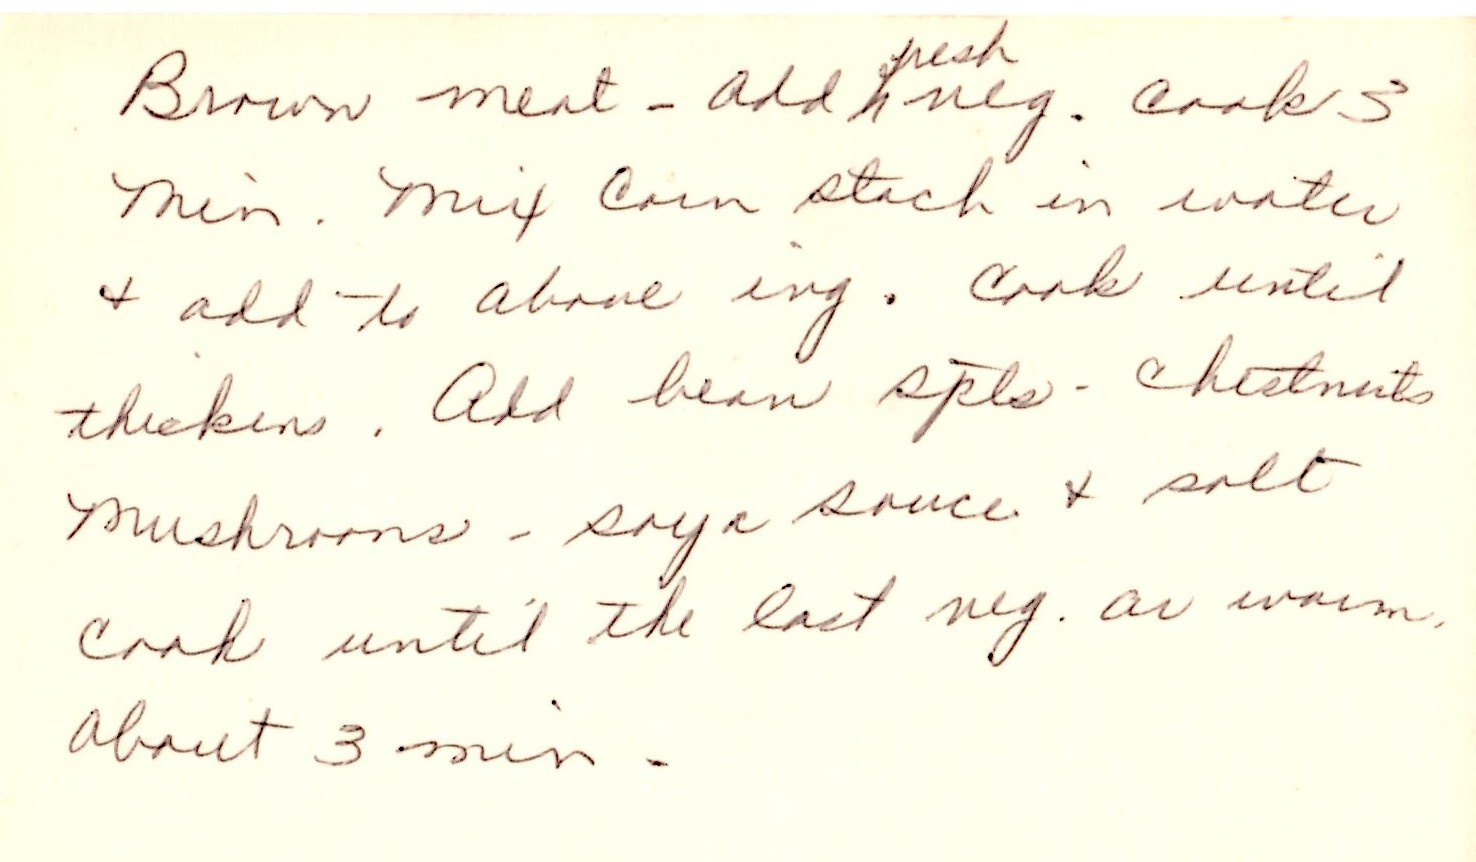 Brown meat - add fresh veg. cook 3
min. Mix corn stach in water
& add to above ing. Cook until
thickens. Add bean spts - chestnuts
mushrooms - soya sauce & salt
cook until the last veg. ar warm.
about 3 min -